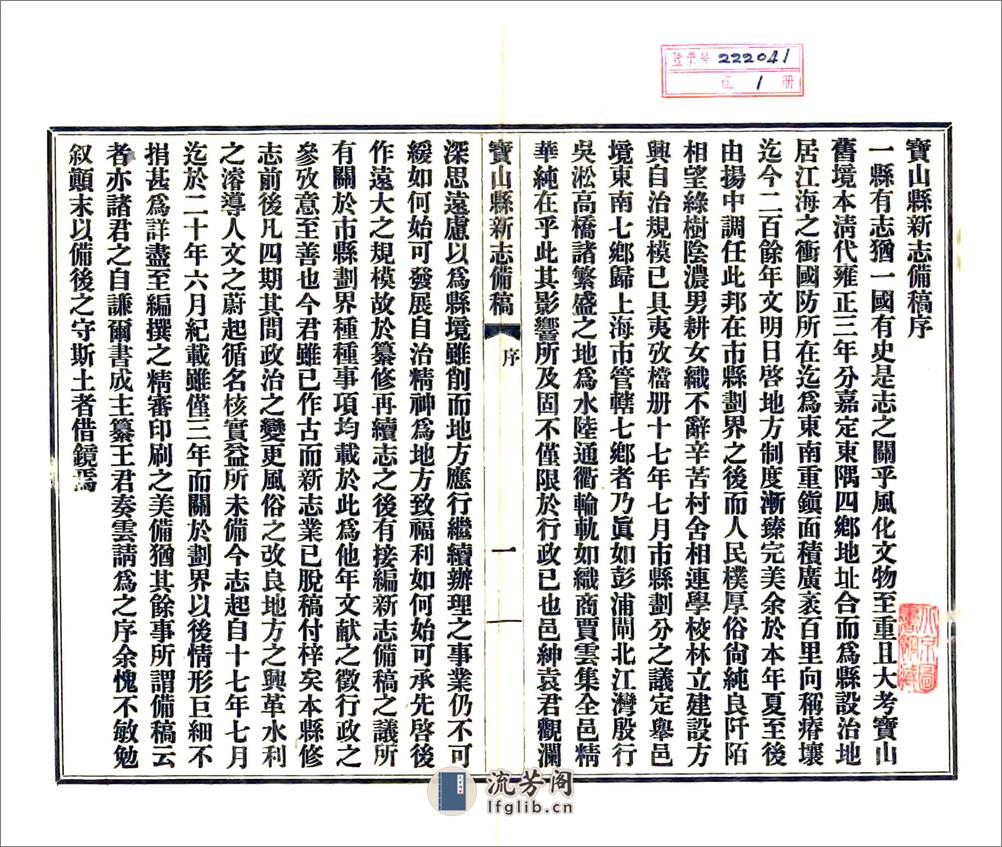 登录号 222041
区 1 册
寶山縣新志備稿序
一縣有志猶一國有史是志之關乎風化文物至重且大考寶山
舊境本清代雍正三年分嘉定東隅四鄉地址合而爲縣設治地
居江海之衝國防所在迄爲東南重鎭面積廣袤百里向稱瘠壤
迄今二百餘年文明日啓地方制度漸臻完美余於本年夏至後
由揚中調任此邦在市縣劃界之後而人民樸厚俗尙純良阡陌
相望綠樹陰濃男耕女織不辭辛苦村舍相連學校林立建設方
興自治規模已具夷攷檔册十七年七月市縣劃分之議定舉邑
境東南七鄉歸上海市管轄七鄉者乃眞如彭浦閘北江灣殷行
吳淞高橋諸繁盛之地爲水陸通衢輪軌如織商賈雲集全邑精
華純在乎此其影響所及固不僅限於行政已也邑紳袁君觀瀾
寶山縣新志備稿 序 一
深思遠慮以爲縣境雖削而地方應行繼續辦理之事業仍不可
緩如何始可發展自治精神爲地方致福利如何始可承先啓後
作遠大之規模故於纂修再續志之後有接編新志備稿之議所
有關於市縣劃界種種事項均載於此爲他年文献之徵行政之
參攷意至善也今君雖已作古而新志業已脫稿付梓矣本縣修
志前後凡四期其間政治之變更風俗之改良地方之興革水利
之濬導人文之蔚起循名核實益所未備今志起自十七年七月
迄於二十年六月紀載雖僅三年而關於劃界以後情形巨細不
捐甚爲詳盡至編撰之精審印刷之美備猶其餘事所謂備稿云
者亦諸君之自謙爾書成主纂王君奏雲請爲之序余愧不敏勉
叙顚末以備後之守斯土者借鏡焉
流芳阁
lfglib.cn